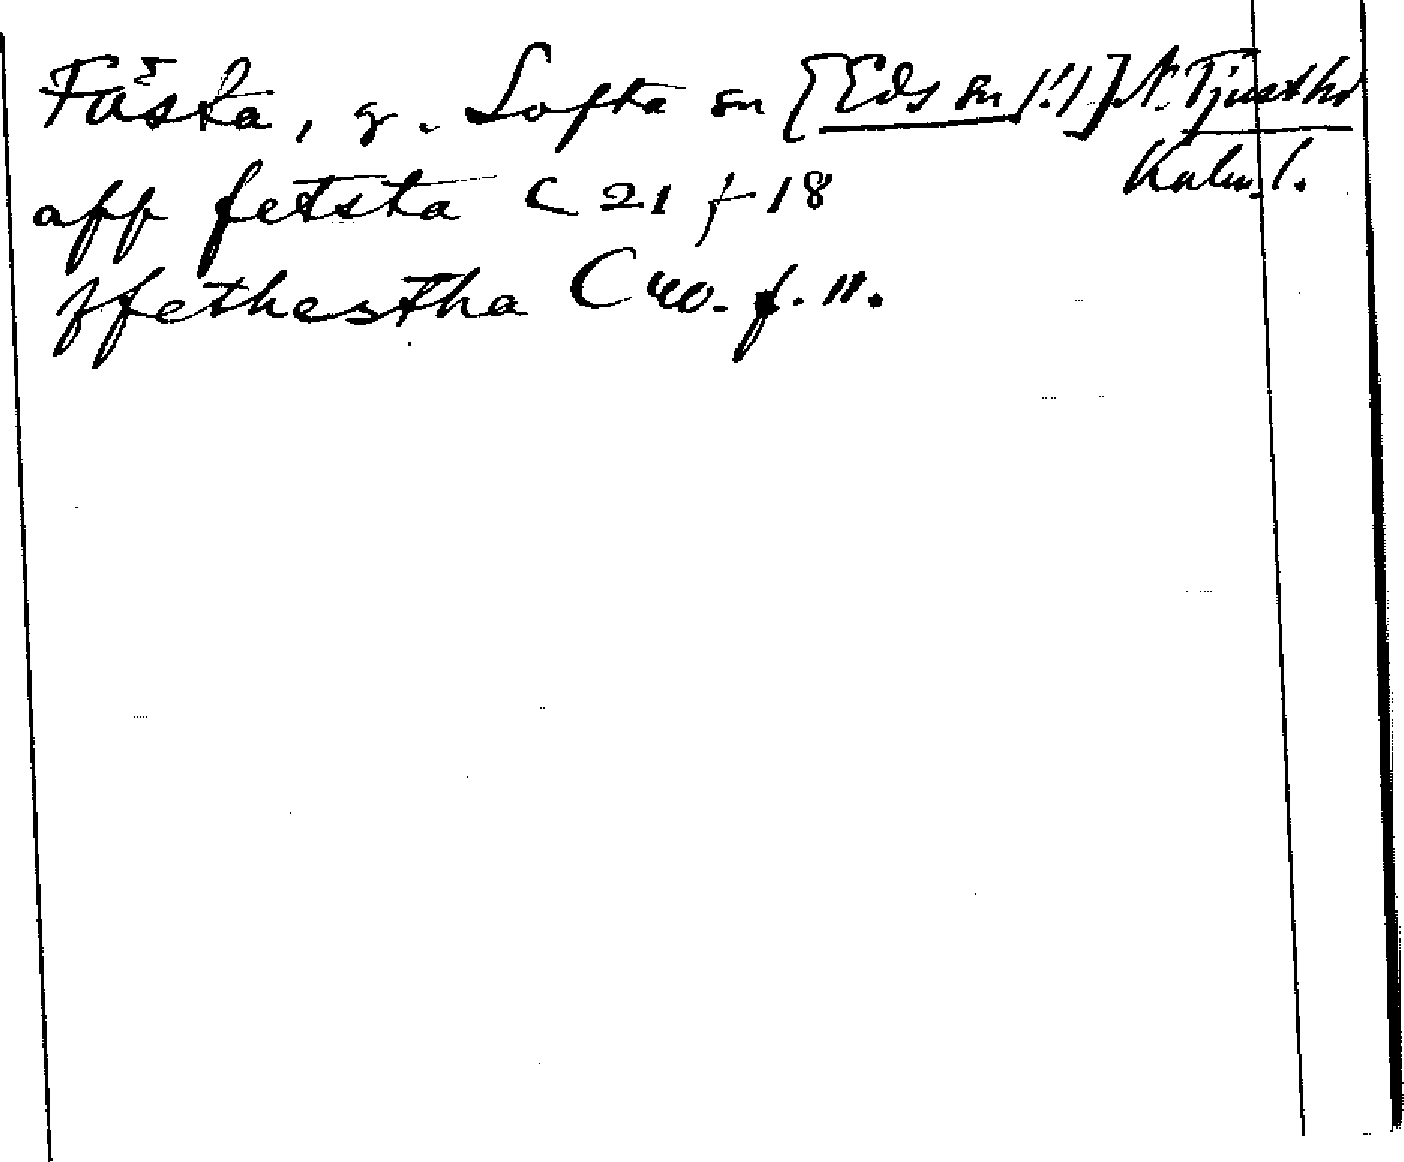 Fästa, g. Lofta sn [Eds sn (!)] N. Tjusts hd
Kalm. l.
aff fetsta C 21 f 18
ffethestha C 40. f. 11.